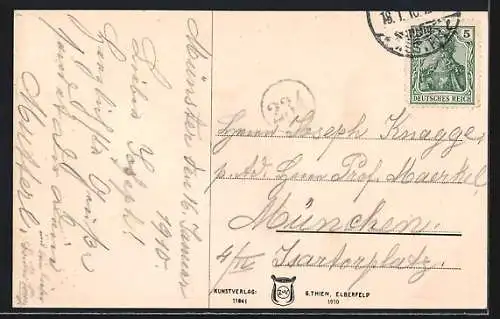 Münster den 16. Januar
1910
Liebes Joseph!
Herzlichste Grüße
sendet Dir Deine
Mutterl.
18.1.10.
5
DEUTSCHES REICH
Herrn Joseph Knagge,
p. Ad. Herrn Prof. Maerkel
München.
4/IV Isartorplatz.
KUNSTVERLAG:
11841
S. THIEN, ELBERFELD
1910